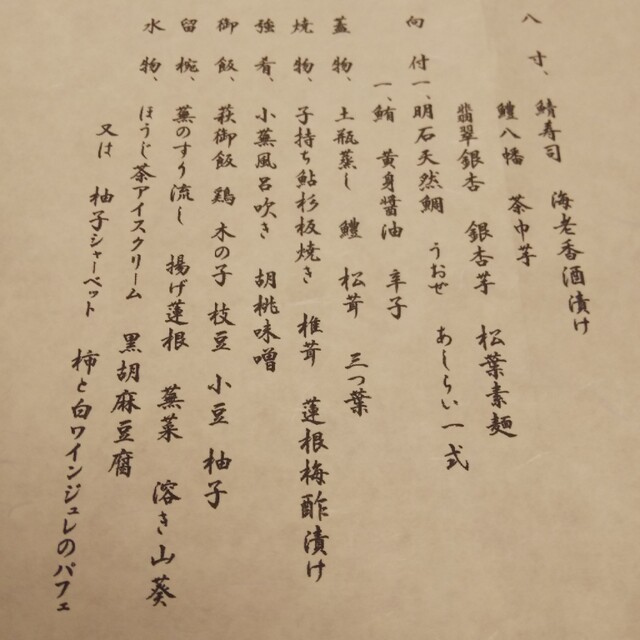 八寸、 鯖寿司 海老香酒漬け
鱧八幡 茶巾芋
翡翠銀杏 銀杏芋 松葉素麺
向付 一、明石天然鯛 うおぜ あしらい一式
一、鮪 黄身醤油 辛子
蓋物、 土瓶蒸し 鱧 松茸 三つ葉
焼物、 子持ち鮎杉板焼き 椎茸 蓮根梅酢漬け
強肴、 小蕪風呂吹き 胡桃味噌
御飯、 萩御飯 鶏 木の子 枝豆 小豆 柚子
留椀、 蕪のすり流し 揚げ蓮根 蕪菜 溶き山葵
水物、 ほうじ茶アイスクリーム 黒胡麻豆腐
又は 柚子シャーベット 柿と白ワインジュレのパフェ